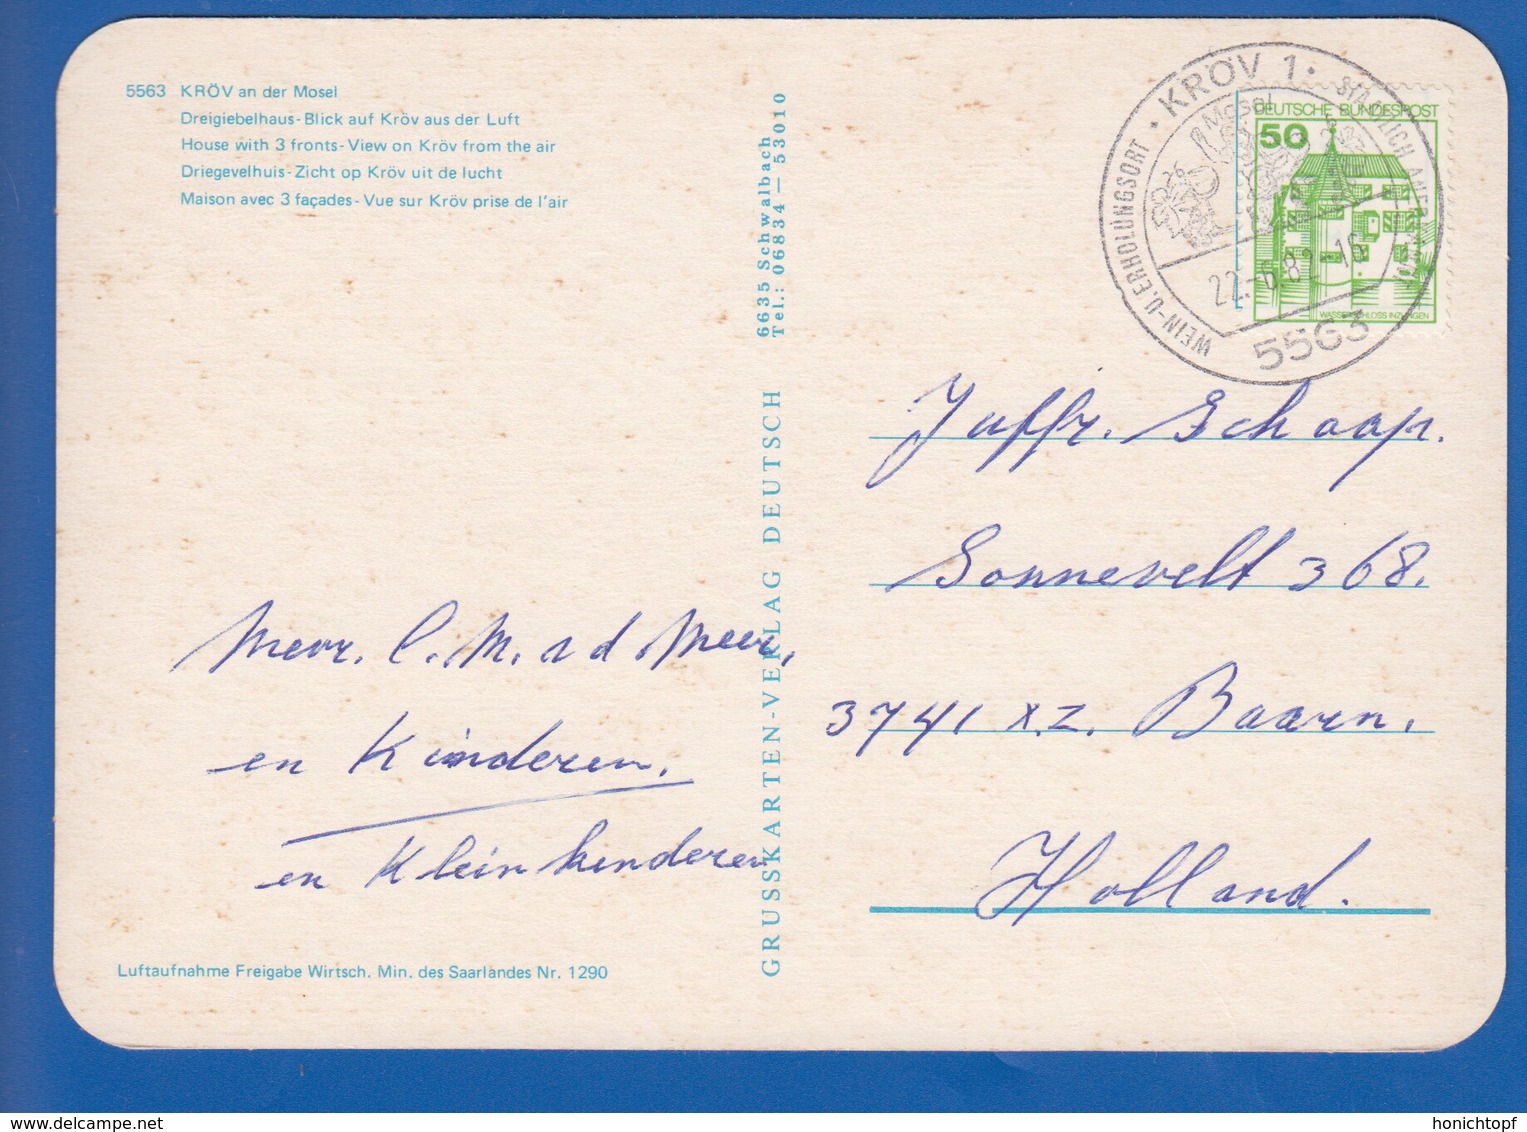 5563 KRÖV an der Mosel
Dreigiebelhaus-Blick auf Kröv aus der Luft
House with 3 fronts-View on Kröv from the air
Driegevelhuis-Zicht op Kröv uit de lucht
Maison avec 3 façades-Vue sur Kröv prise de l'air
Mevr. C. M. v d Meer,
en Kinderen.
en Kleinkinderen
Luftaufnahme Freigabe Wirtsch. Min. des Saarlandes Nr. 1290
GRUSSKARTEN-VERLAG DEUTSCH
6635 Schwalbach
Tel.: 06834 — 53010
KRÖV 1
STAATLICH ANERKANNTER
WEIN-U. ERHOLUNGSORT
Mosel
22.-6.82-16
5563
DEUTSCHE BUNDESPOST
50
WASSERSCHLOSS INZLINGEN
Juffr. Schaap.
Sonnevelt 368.
3741 X.Z. Baarn.
Holland.
honichtopf